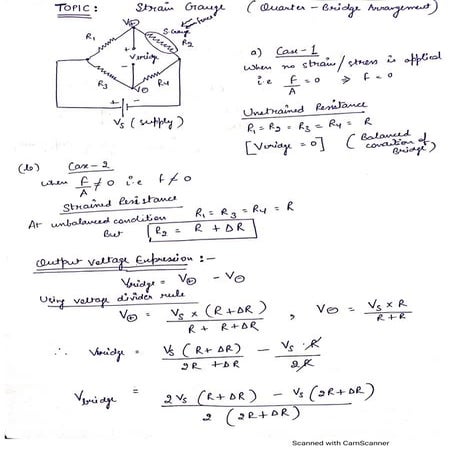 TOPIC: Strain Gauge (Quarter-Bridge Arrangement)
V⊕
R1
S.Gauge
R2
Vbridge
R3
V⊖
R4
Vs (supply)
a) Case-1
When no strain/stress is applied
i.e F/A = 0 ⇒ F = 0
Unstrained Resistance
R1 = R2 = R3 = R4 = R
[Vbridge = 0] (Balanced condition of Bridge)
(b) Case-2
when F/A ≠ 0 i.e F ≠ 0
Strained Resistance
At unbalanced condition R1 = R3 = R4 = R
But R2 = R + ΔR
Output Voltage Expression :-
Vbridge = V⊕ - V⊖
Using voltage divider rule
V⊕ = Vs × (R+ΔR) / R + R+ΔR , V⊖ = Vs × R / R+R
∴ Vbridge = Vs (R+ΔR) / 2R +ΔR - Vs · R / 2R
Vbridge = 2Vs (R+ΔR) - Vs (2R+ΔR) / 2 (2R+ΔR)
Scanned with CamScanner